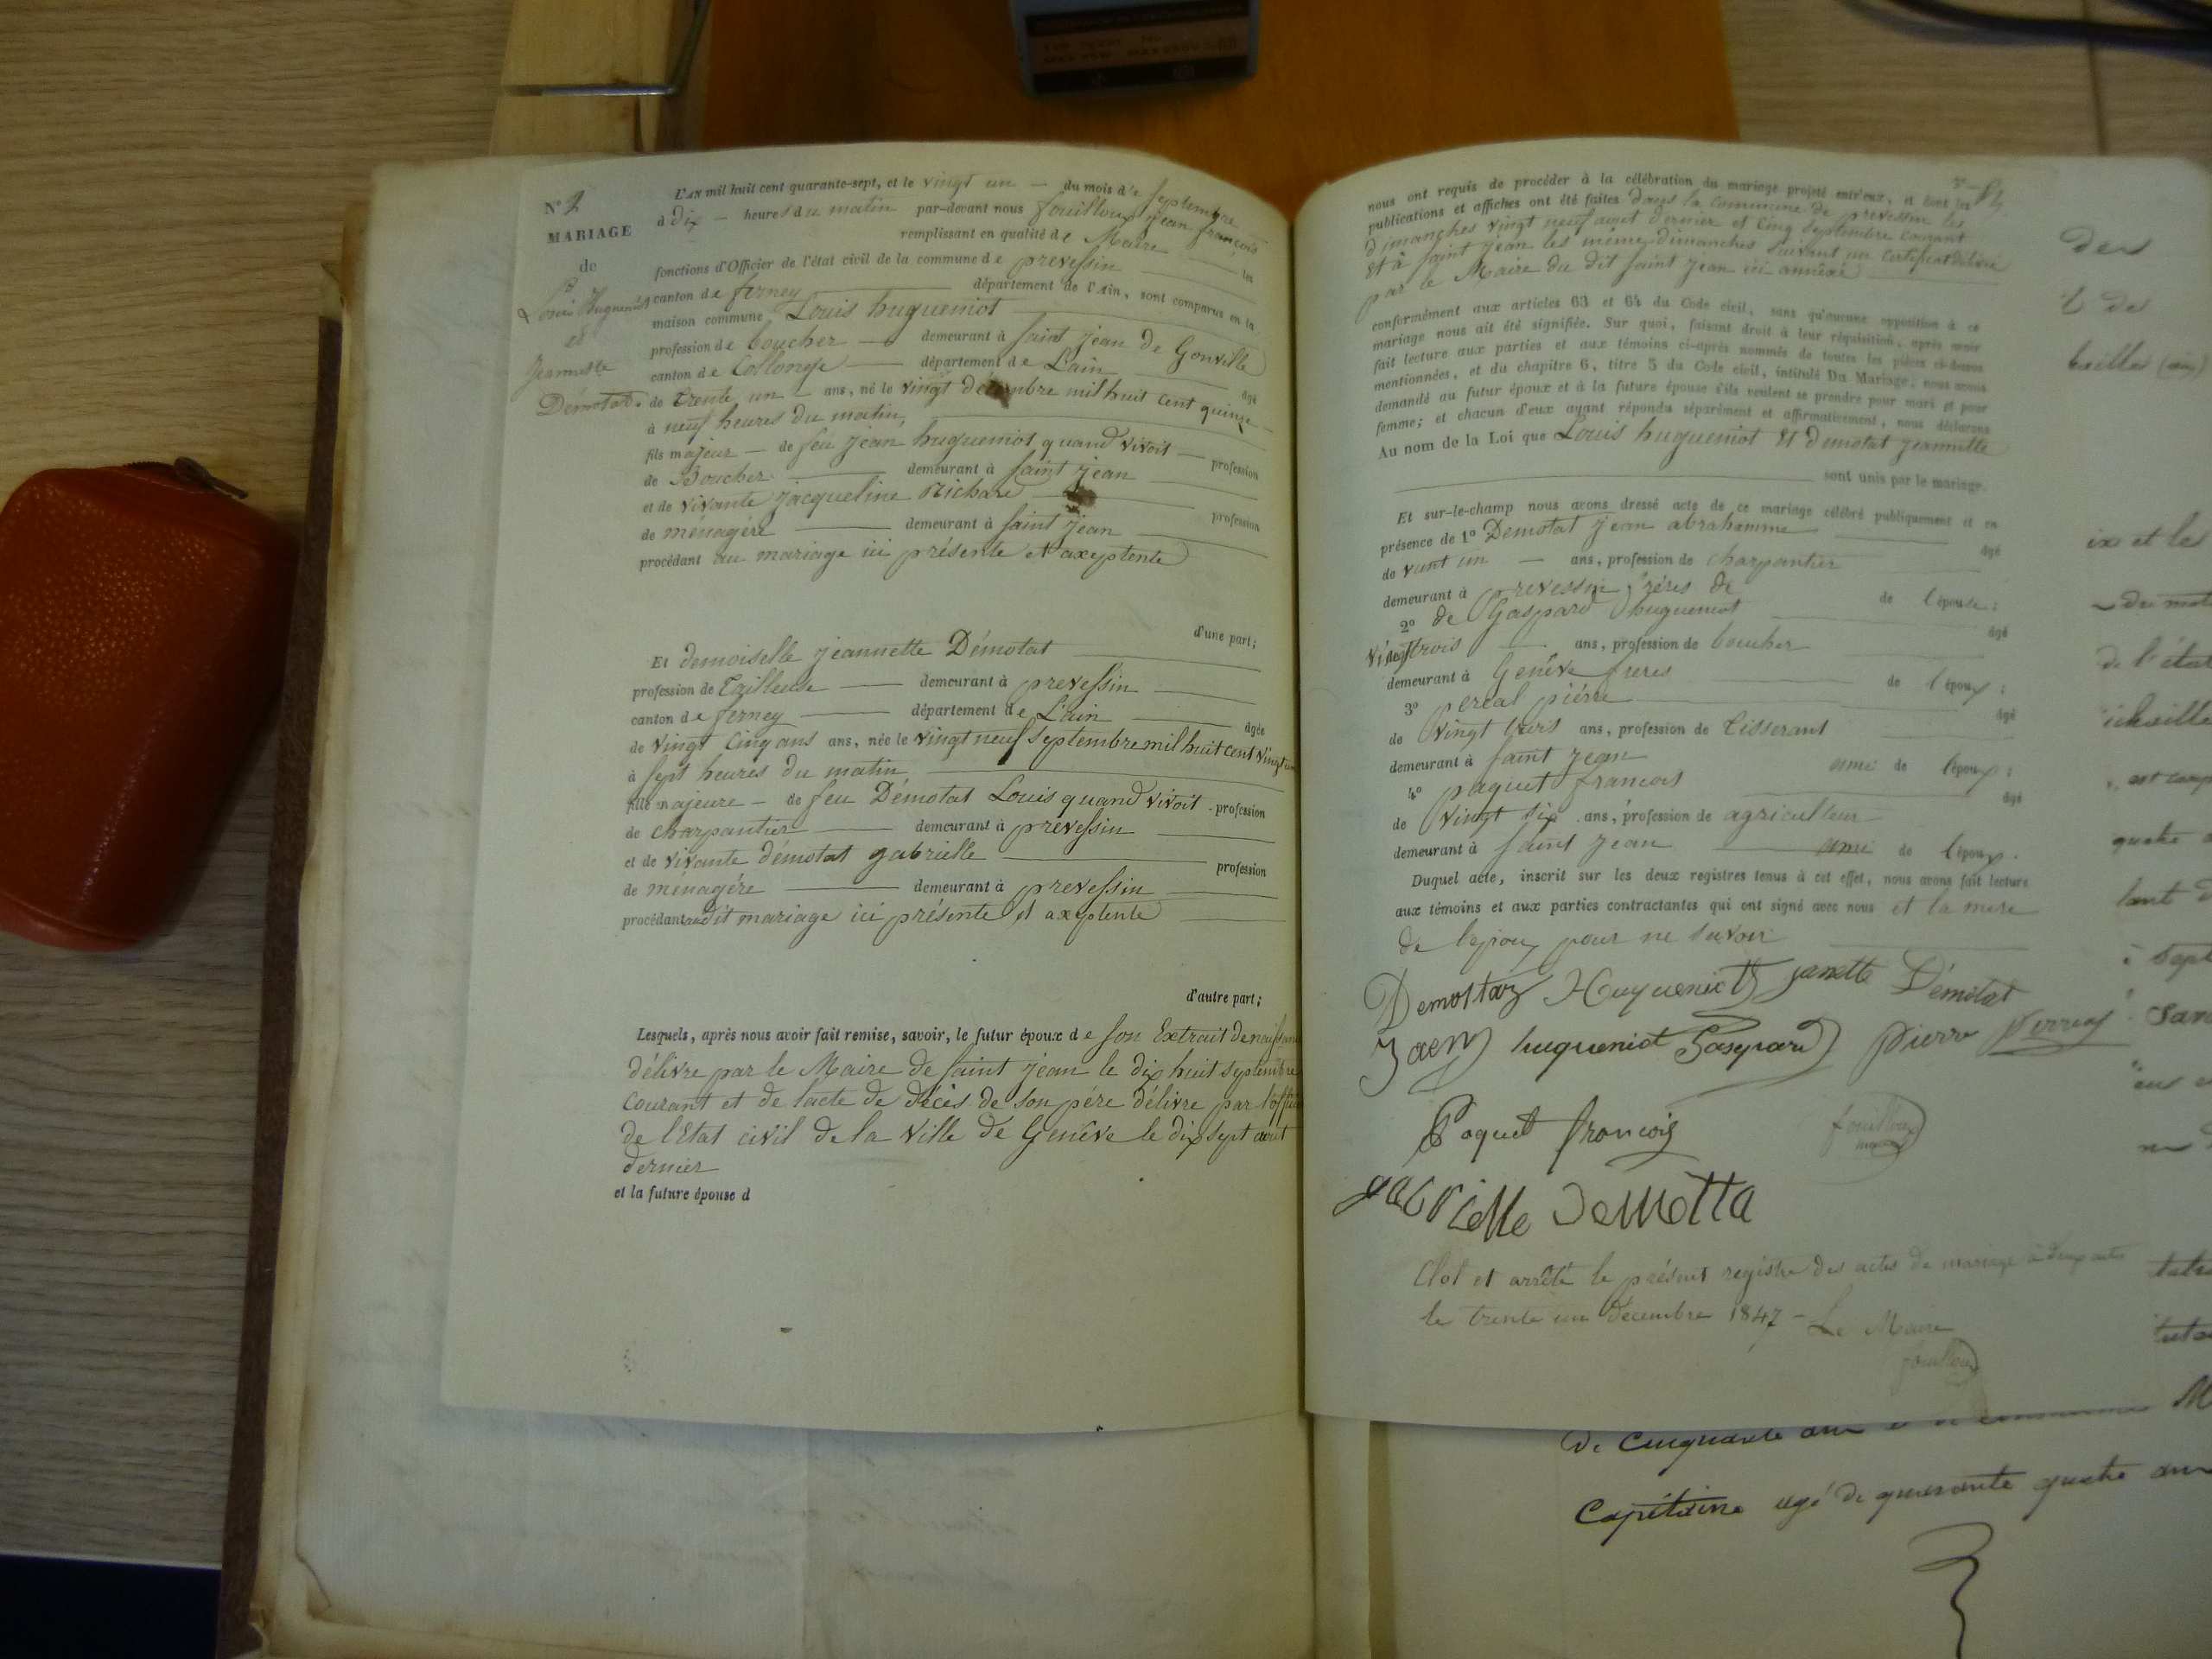 N° 2
MARIAGE
de
Louis Hugueniot
et
Jeannette
Démotat.
L'AN mil huit cent quarante-sept, et le vingt un du mois de Septembre
à dix heures du matin par-devant nous fouilloux jean françois
remplissant en qualité de Maire les
fonctions d'Officier de l'état civil de la commune de prevessin
canton de ferney département de l'Ain, sont comparus en la
maison commune Louis hugueniot
profession de boucher demeurant à saint jean de Gonville
canton de Collonge département de L'ain âgé
de trente un ans, né le vingt décembre mil huit cent quinze
à neuf heures du matin,
fils majeur de feu jean hugueniot quand vivoit profession
de Boucher demeurant à saint jean
et de vivante jacqueline Richard profession
de ménagére demeurant à saint jean
procédant au mariage ici présente et axeptente
d'une part;
Et demoiselle jeannette Démotat
profession de Tailleuse demeurant à prevessin
canton de ferney département de L'ain âgée
de vingt cinq ans ans, née le vingt neuf septembre mil huit cent vingt un
à sept heures du matin
fille majeure de feu Démotat Louis quand vivoit profession
de charpantier demeurant à prevessin
et de vivante démotat gabrielle profession
de ménagére demeurant à prevessin
procédant audit mariage ici présente et axeptente
d'autre part;
Lesquels, après nous avoir fait remise, savoir, le futur époux de son Extrait de naissance
délivre par le Maire de saint jean le dix huit septembre
courant et de lacte de décés de son pére délivre par l'officier
de l'Etat civil de la ville de Genéve le dix sept aout
dernier
et la future épouse d
nous ont requis de procéder à la célébration du mariage projeté entr'eux, et dont les
publications et affiches ont été faites dans la commune de prevessin les
dimanches vingt neuf aout dernier et cinq septembre courant
et à saint jean les même dimanches suivant un certificat délivré
par le Maire du dit saint jean ici annéxé
conformément aux articles 63 et 64 du Code civil, sans qu'aucune opposition à ce
mariage nous ait été signifiée. Sur quoi, faisant droit à leur réquisition, après avoir
fait lecture aux parties et aux témoins ci-après nommés de toutes les pièces ci-dessus
mentionnées, et du chapitre 6, titre 5 du Code civil, intitulé Du Mariage, nous avons
demandé au futur époux et à la future épouse s'ils veulent se prendre pour mari et pour
femme; et chacun d'eux ayant répondu séparément et affirmativement, nous déclarons
Au nom de la Loi que Louis hugueniot et demotat jeannette
sont unis par le mariage.
Et sur-le-champ nous avons dressé acte de ce mariage célébré publiquement et en
présence de 1° Demotat jean abrahamme âgé
de vant un ans, profession de charpantier
demeurant à prevessin fréres de de l'épouse;
2° de Gaspard hugueniot âgé
vingt trois ans, profession de boucher
demeurant à Genêve freres de l'époux;
3° pereal piérre âgé
de vingt trois ans, profession de tisserant
demeurant à saint jean ami de l'époux;
4° paquet francois âgé
de vingt six ans, profession de agriculteur
demeurant à saint jean ami de l'époux.
Duquel acte, inscrit sur les deux registres tenus à cet effet, nous avons fait lecture
aux témoins et aux parties contractantes qui ont signé avec nous et la mere
de lepoux pour ne savoir
Demottaz Hugueniot janette Démotat
Jaen hugueniot Gaspard pierre
Paquet francois fouilloux
maire
gabrielle Demotta
Clos et arrêté le présent registre des actes de mariage à deux actes
le trente un décembre 1847 - Le Maire
fouilloux
ix et le
de l'état
de Cinquante ans
Capitaine agé de quarante quatre ans